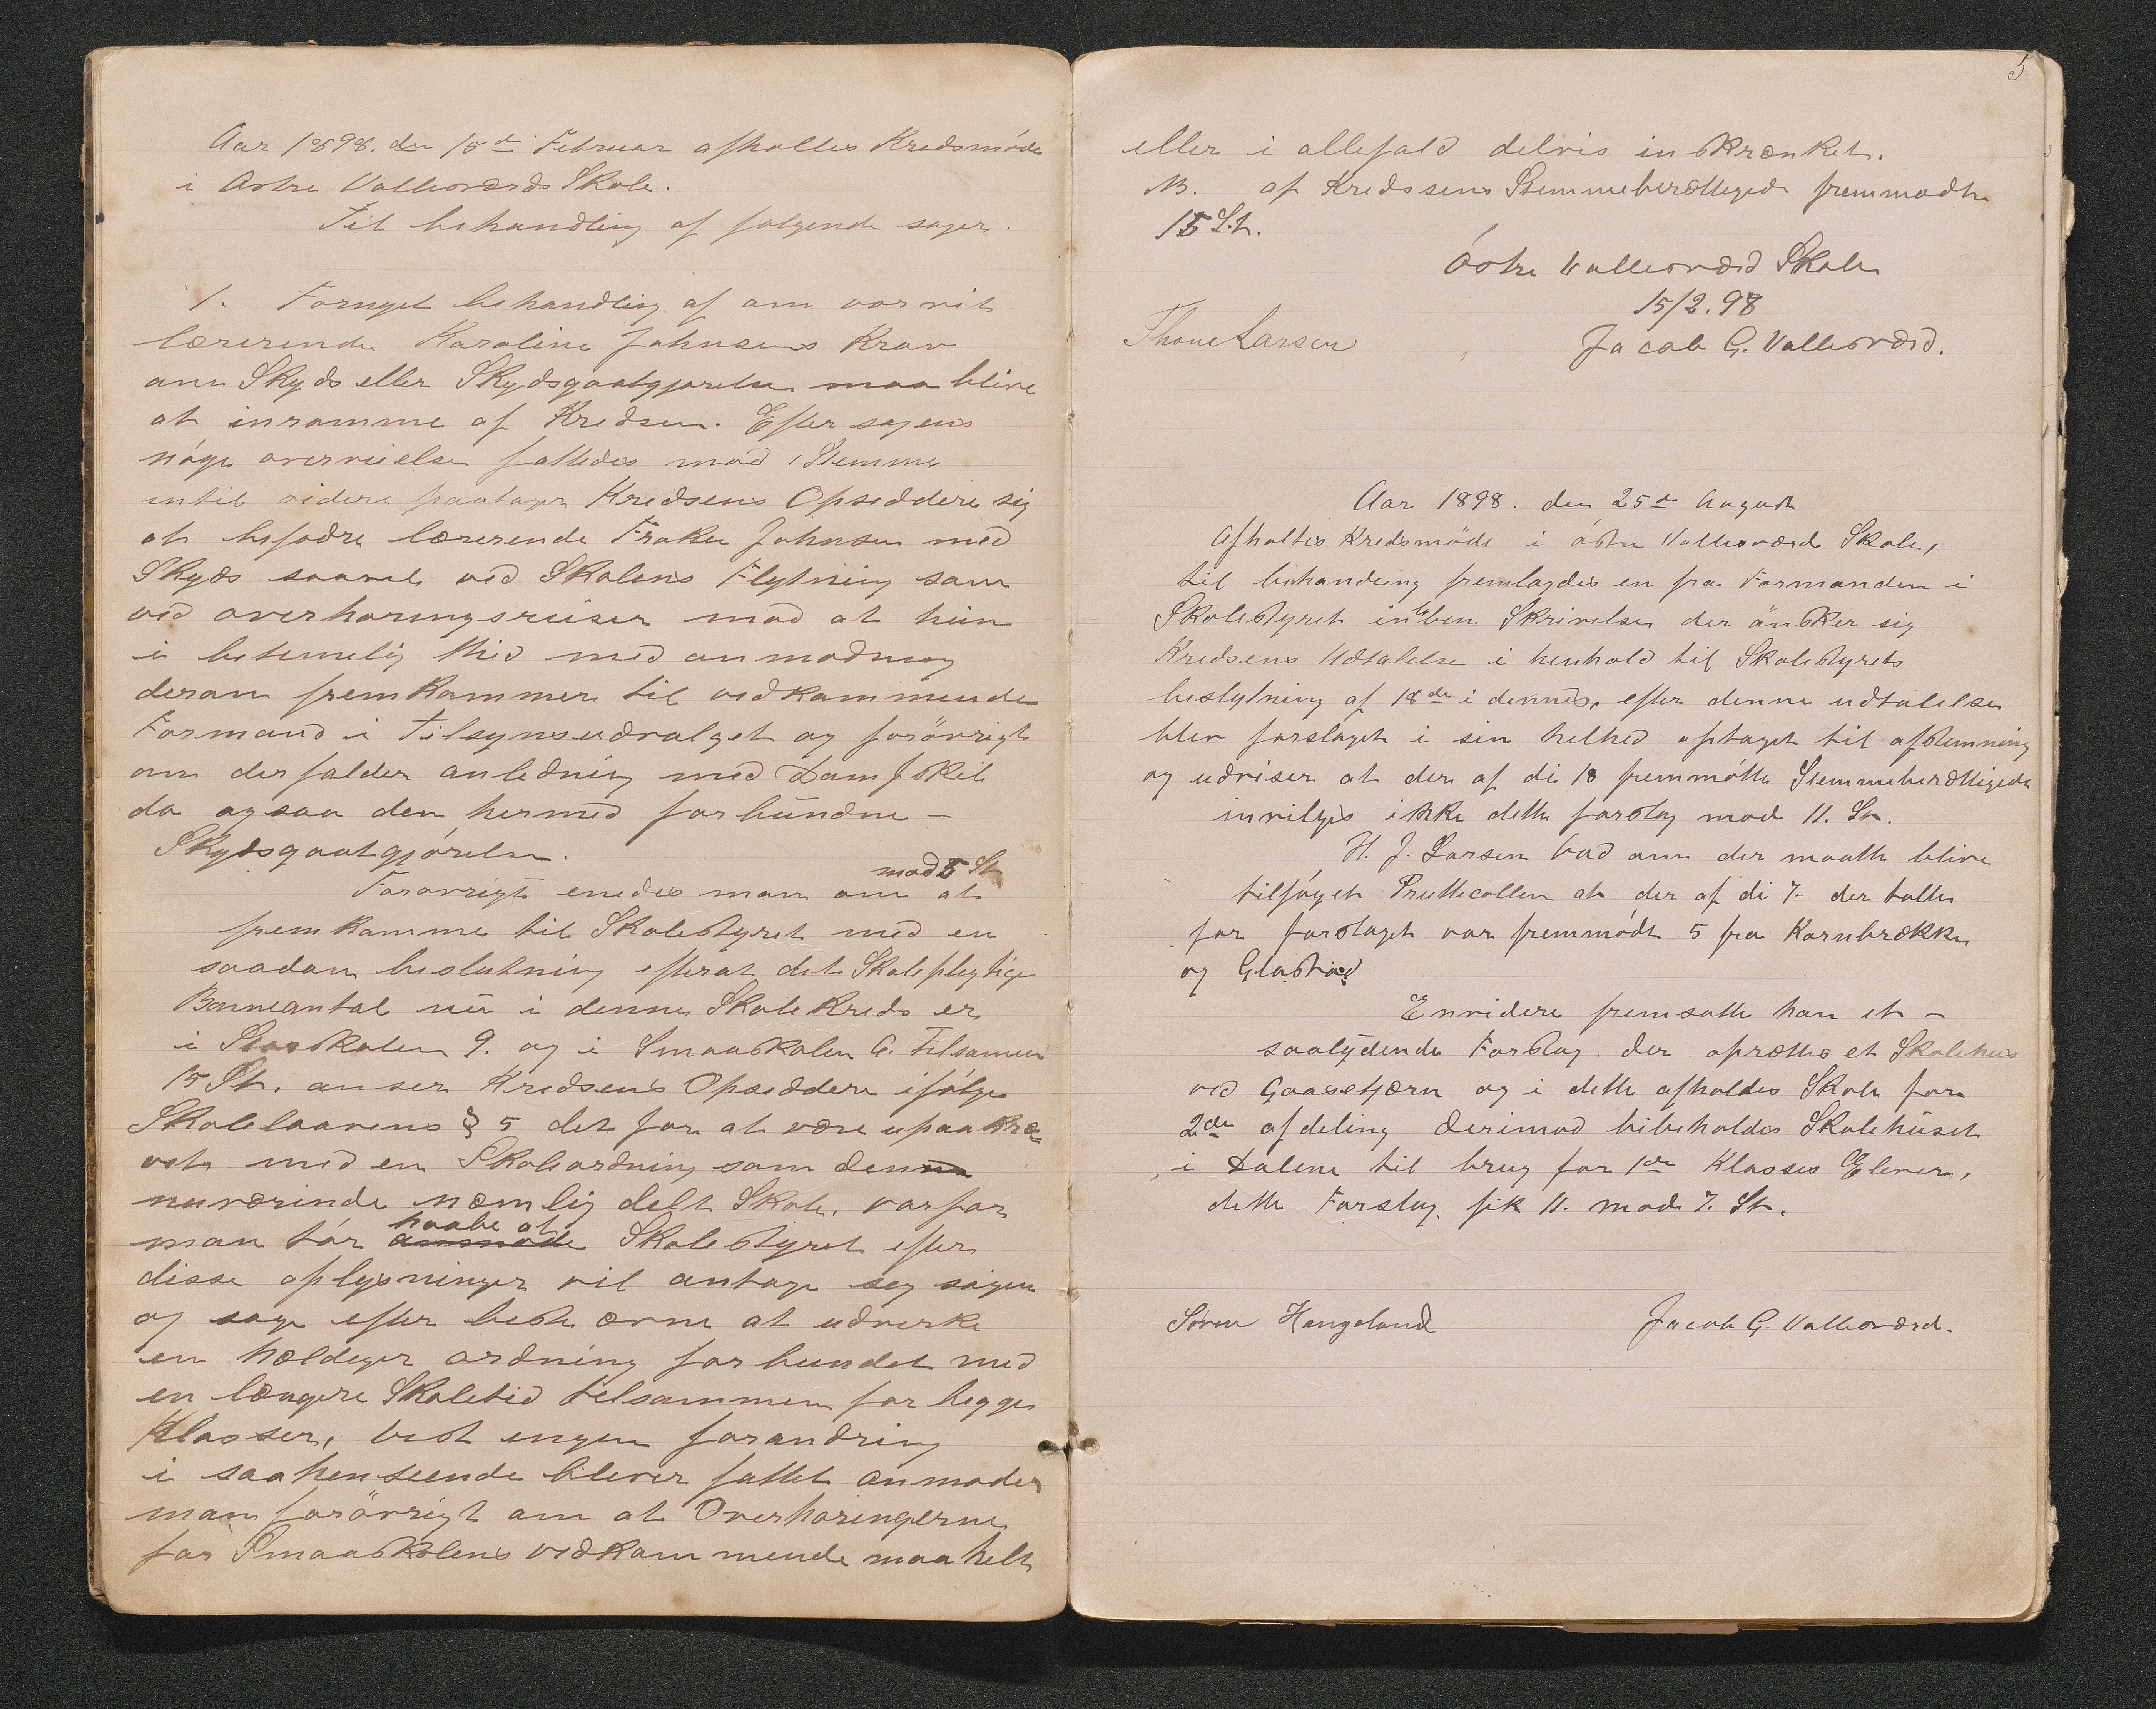 Aar 1898. den 15de Februar afholtes Kredsmöde
i Østre Vallesværds Skole.
Til behandling af følgende sager.
1. Fornyet behandling af om vor
lærerinde Karoline Johnsens Krav
om Skyds eller Skydsgodtgjørelse maa blive
at inrømme af Kredsen. Efter sagens
nöge overveielse fattedes mod 1 Stemme
intil videre paatager Kredsens Opsiddere sig
at befodre lærerinde Frøken Johnsen med
Skyds saavel ved Skolens Flytning som
ved overhøringsreiser mod at hun
i betimelig thid med anmodning
derom fremkommer til vedkommende
Formand i Tilsynsudvalget og forövrigt
om der falder anledning med Damskib
da ogsaa den hermed forbundne -
Skydsgodtgjörelse.
mod 5 St
Forøvrigt enedes man om at
fremkomme til Skolestyret med en
saadan beslutning efterat det Skolepligtige
Børneantal nu i denne Skolekreds er
i Storskolen 9. og i Smaaskolen 6. tilsamen
15 St. anser Kredsens Opsiddere ifölge
Skolelaavens § 5 det for at være upaakræ-
vet med en Skoleordning som denne
nuværende nemlig delt Skole. varfor
haabe at
man tör anmode Skolestyret efter
disse oplysninger vil antage seg sagen
og søge efter beste ævne at udverke
en heldiger ordning forbundet med
en længere Skoletid tilsammen for begge
Klasser, vist ingen forandring
i saa henseende bliver fattet anmoder
man forövrigt om at Overhøringerne
for Smaaskolens vedkommende maa helt
5.
eller i allefald delvis inskrænket.
NB. af Kredssens Stemmeberettigede fremmødte
15 St.
Östre Vallesværd Skole
15/2. 98
Thone Larsen Jacob G. Vallesværd.
Aar 1898. den 25de August
Afholtes Kredsmöde i östre Vallesværds Skole,
til behandling fremlagdes en fra Formanden i
Skolestyret inbleven Skrivelse der önsker sig
Kredsens Udtalelse i henhold til Skolestyrets
beslutning af 18de i dennes, efter denne udtalelse
blev forslaget i sin helhed optaget til afstemning
og udviser at der af di 18 fremmötte Stemmeberettigede
invilges ikke dette forslag mod 11. St.
H. J. Larsen bad om der maatte blive
tilföyet Prottecollen at der af di 7 der talte
for forslaget var fremmödt 5 fra Kornbrække
og Glastad
Envidere fremsatte han et -
saalydende Forslag. der oprettes et Skolehus
ved Gaasetjærn og i dette afholdes Skole for
2den afdeling derimod bibeholdes Skolehuset
i Dalene til brug for 1ste Klasses Elever,
dette Forslag fik 11. mod 7. St.
Søren Haugeland Jacob G. Vallesværd.